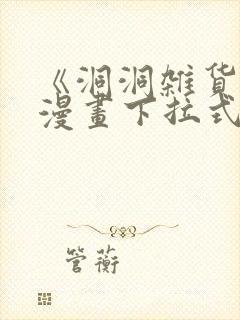 《洞洞雑货
漫畫下拉式
管蘅